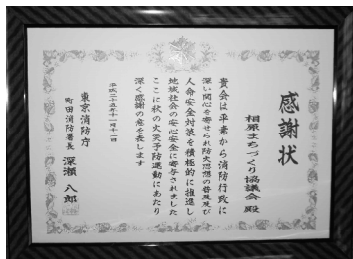 感謝状
相原まちづくり協議会 殿
貴会は平素から消防行政に
深い関心を寄せられ防火思想の普及及び
人命安全対策を積極的に推進し
地域社会の安心安全に寄与されました
ここに秋の火災予防運動にあたり
深く感謝の意を表します
平成二十五年十一月十一日
東京消防庁
町田消防署長 深瀬 八郎